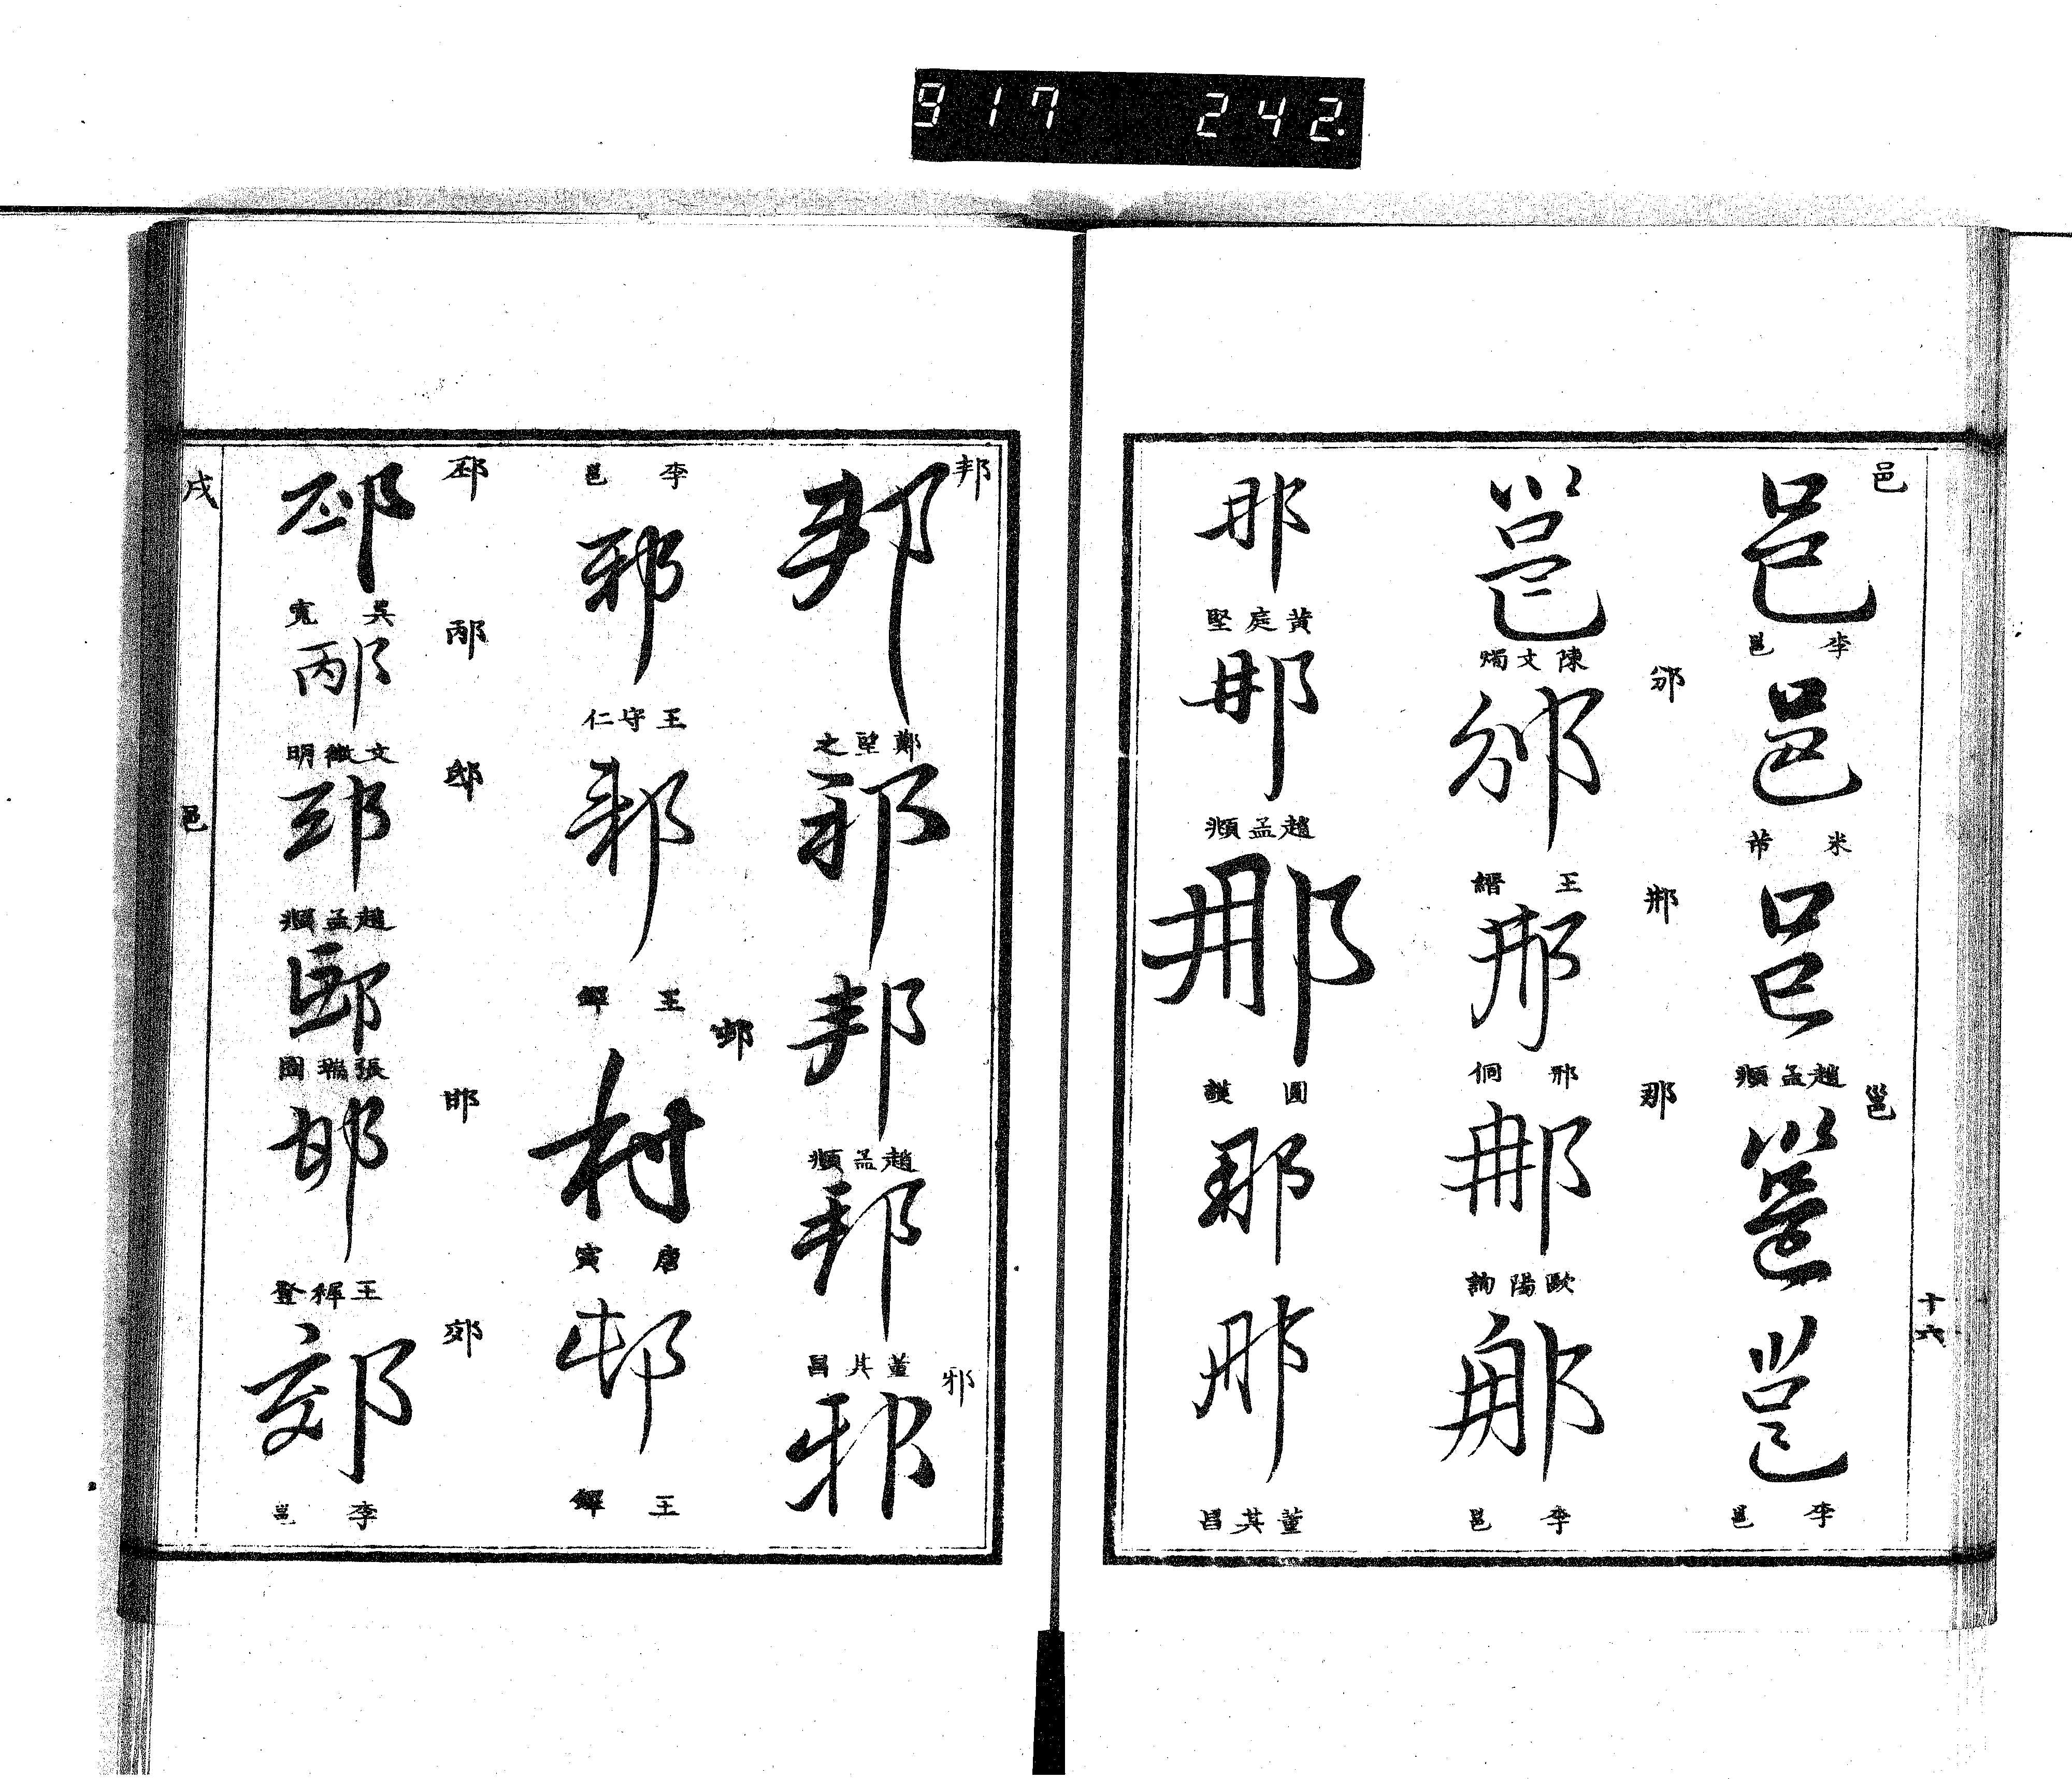 917 242
邑
邑
李邑
邑
米芾
邑
趙孟頫
邕
邕
邕
李邕
邕
陳文燭
邠
邠
王縉
邢
邢
邢侗
那
那
歐陽詢
那
李邕
那
黃庭堅
那
趙孟頫
那
圓護
那
那
董其昌
十六
邦
邦
鄭望之
邦
邦
趙孟頫
邦
董其昌
邪
邪
李邕
邪
王守仁
邪
王鐸
邨
村
唐寅
邨
王鐸
邳
邳
吳寬
邴
邴
文徵明
邸
邸
趙孟頫
邸
張瑞圖
邯
邯
王穉登
郊
郊
李邕
戌
邑